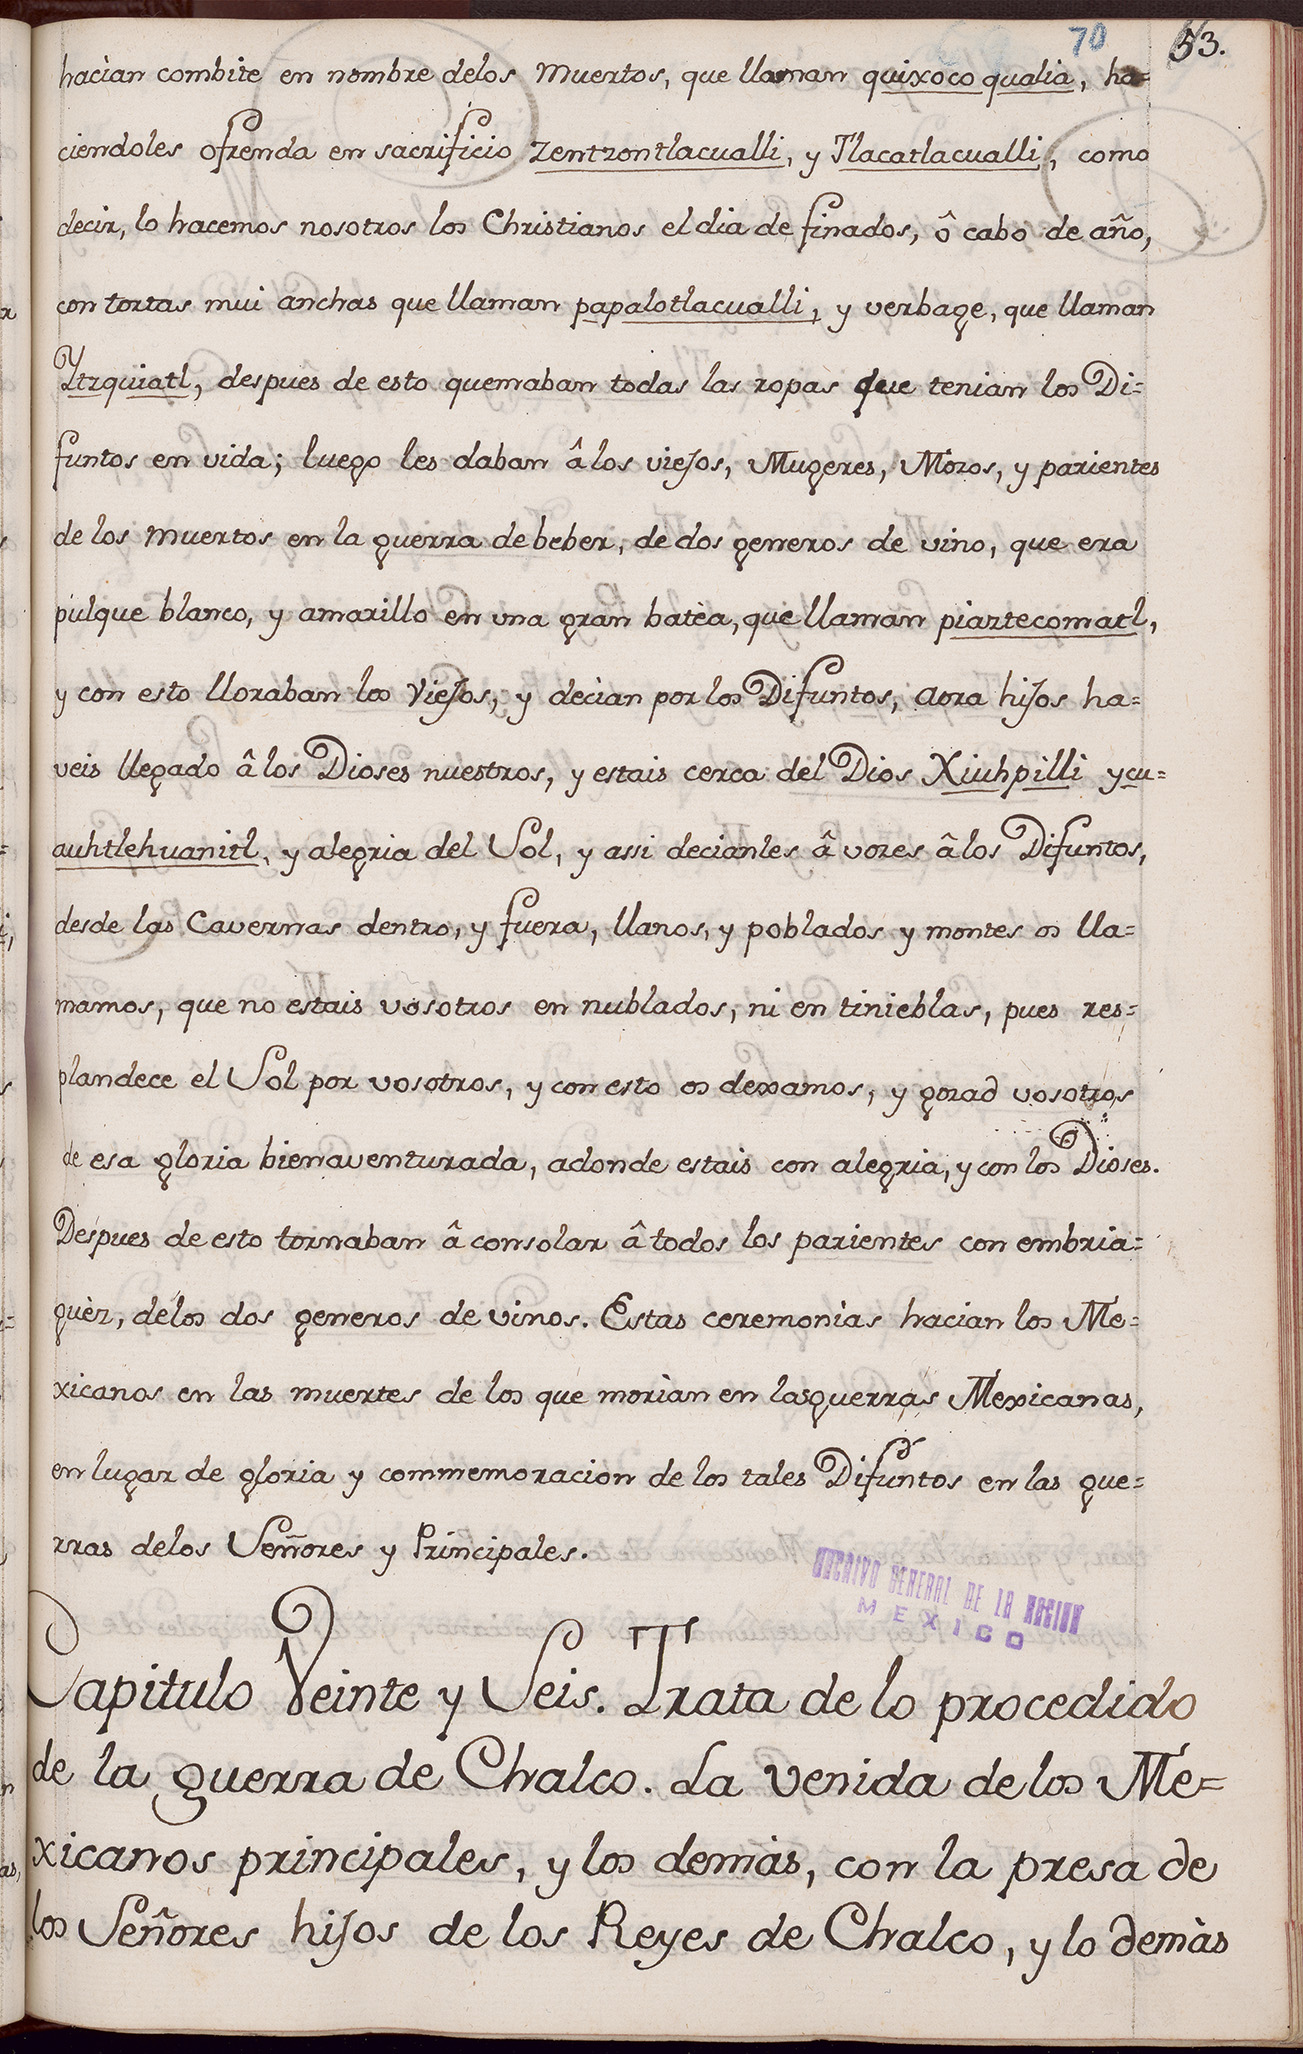 70 53.
hacìan combite en nombre delos Muertos, que llaman quixoco qualia, ha=
ciendoles ofrenda en sacrificio zentzontlacualli, y Tlacatlacualli, como
decir, lo hacemos nosotros los Christianos el dia de finados, ô cabo de año,
con tortas mui anchas que llaman papalotlacualli, y verbage, que llaman
Ytzquiatl, despues de esto quemaban todas las ropas que tenian los Di=
funtos en vida; luego les daban â los viejos, Mugeres, Mozos, y parientes
de los Muertos en la guerra de beber, de dos generos de vino, que era
pulque blanco, y amarillo en una gran batèa, que llaman piaztecomatl,
y con esto lloraban los Viejos, y decìan por los Difuntos, aora hijos ha=
veis llegado â los Dioses nuestros, y estais cerca del Dios Xiuhpilli ycu=
auhtlehuanitl, y alegria del Sol, y assi decianles â vozes â los Difuntos,
desde las Cavernas dentro, y fuera, llanos, y poblados y montes os lla=
mamos, que no estais vosotros en nublados, ni en tinieblas, pues res=
plandece el Sol por vosotros, y con esto os dexamos, y gozad vosotros
de esa gloria bienaventurada, adonde estais con alegria, y con los Dioses.
Despues de esto tornaban â consolar â todos los parientes con embria=
guèz, delos dos generos de vinos. Estas ceremonias hacian los Me=
xicanos en las muertes de los que morìan en las guerras Mexicanas,
en lugar de gloria y commemoracion de los tales Difuntos en las gue=
rras delos Señores y Principales.
ARCHIVO GENERAL DE LA NACION
MEXICO
Capitulo Veinte y Seis. Trata de lo procedido
de la guerra de Chalco. La venida de los Me=
xicanos principales, y los demàs, con la presa de
los Señores hijos de los Reyes de Chalco, y lo demàs